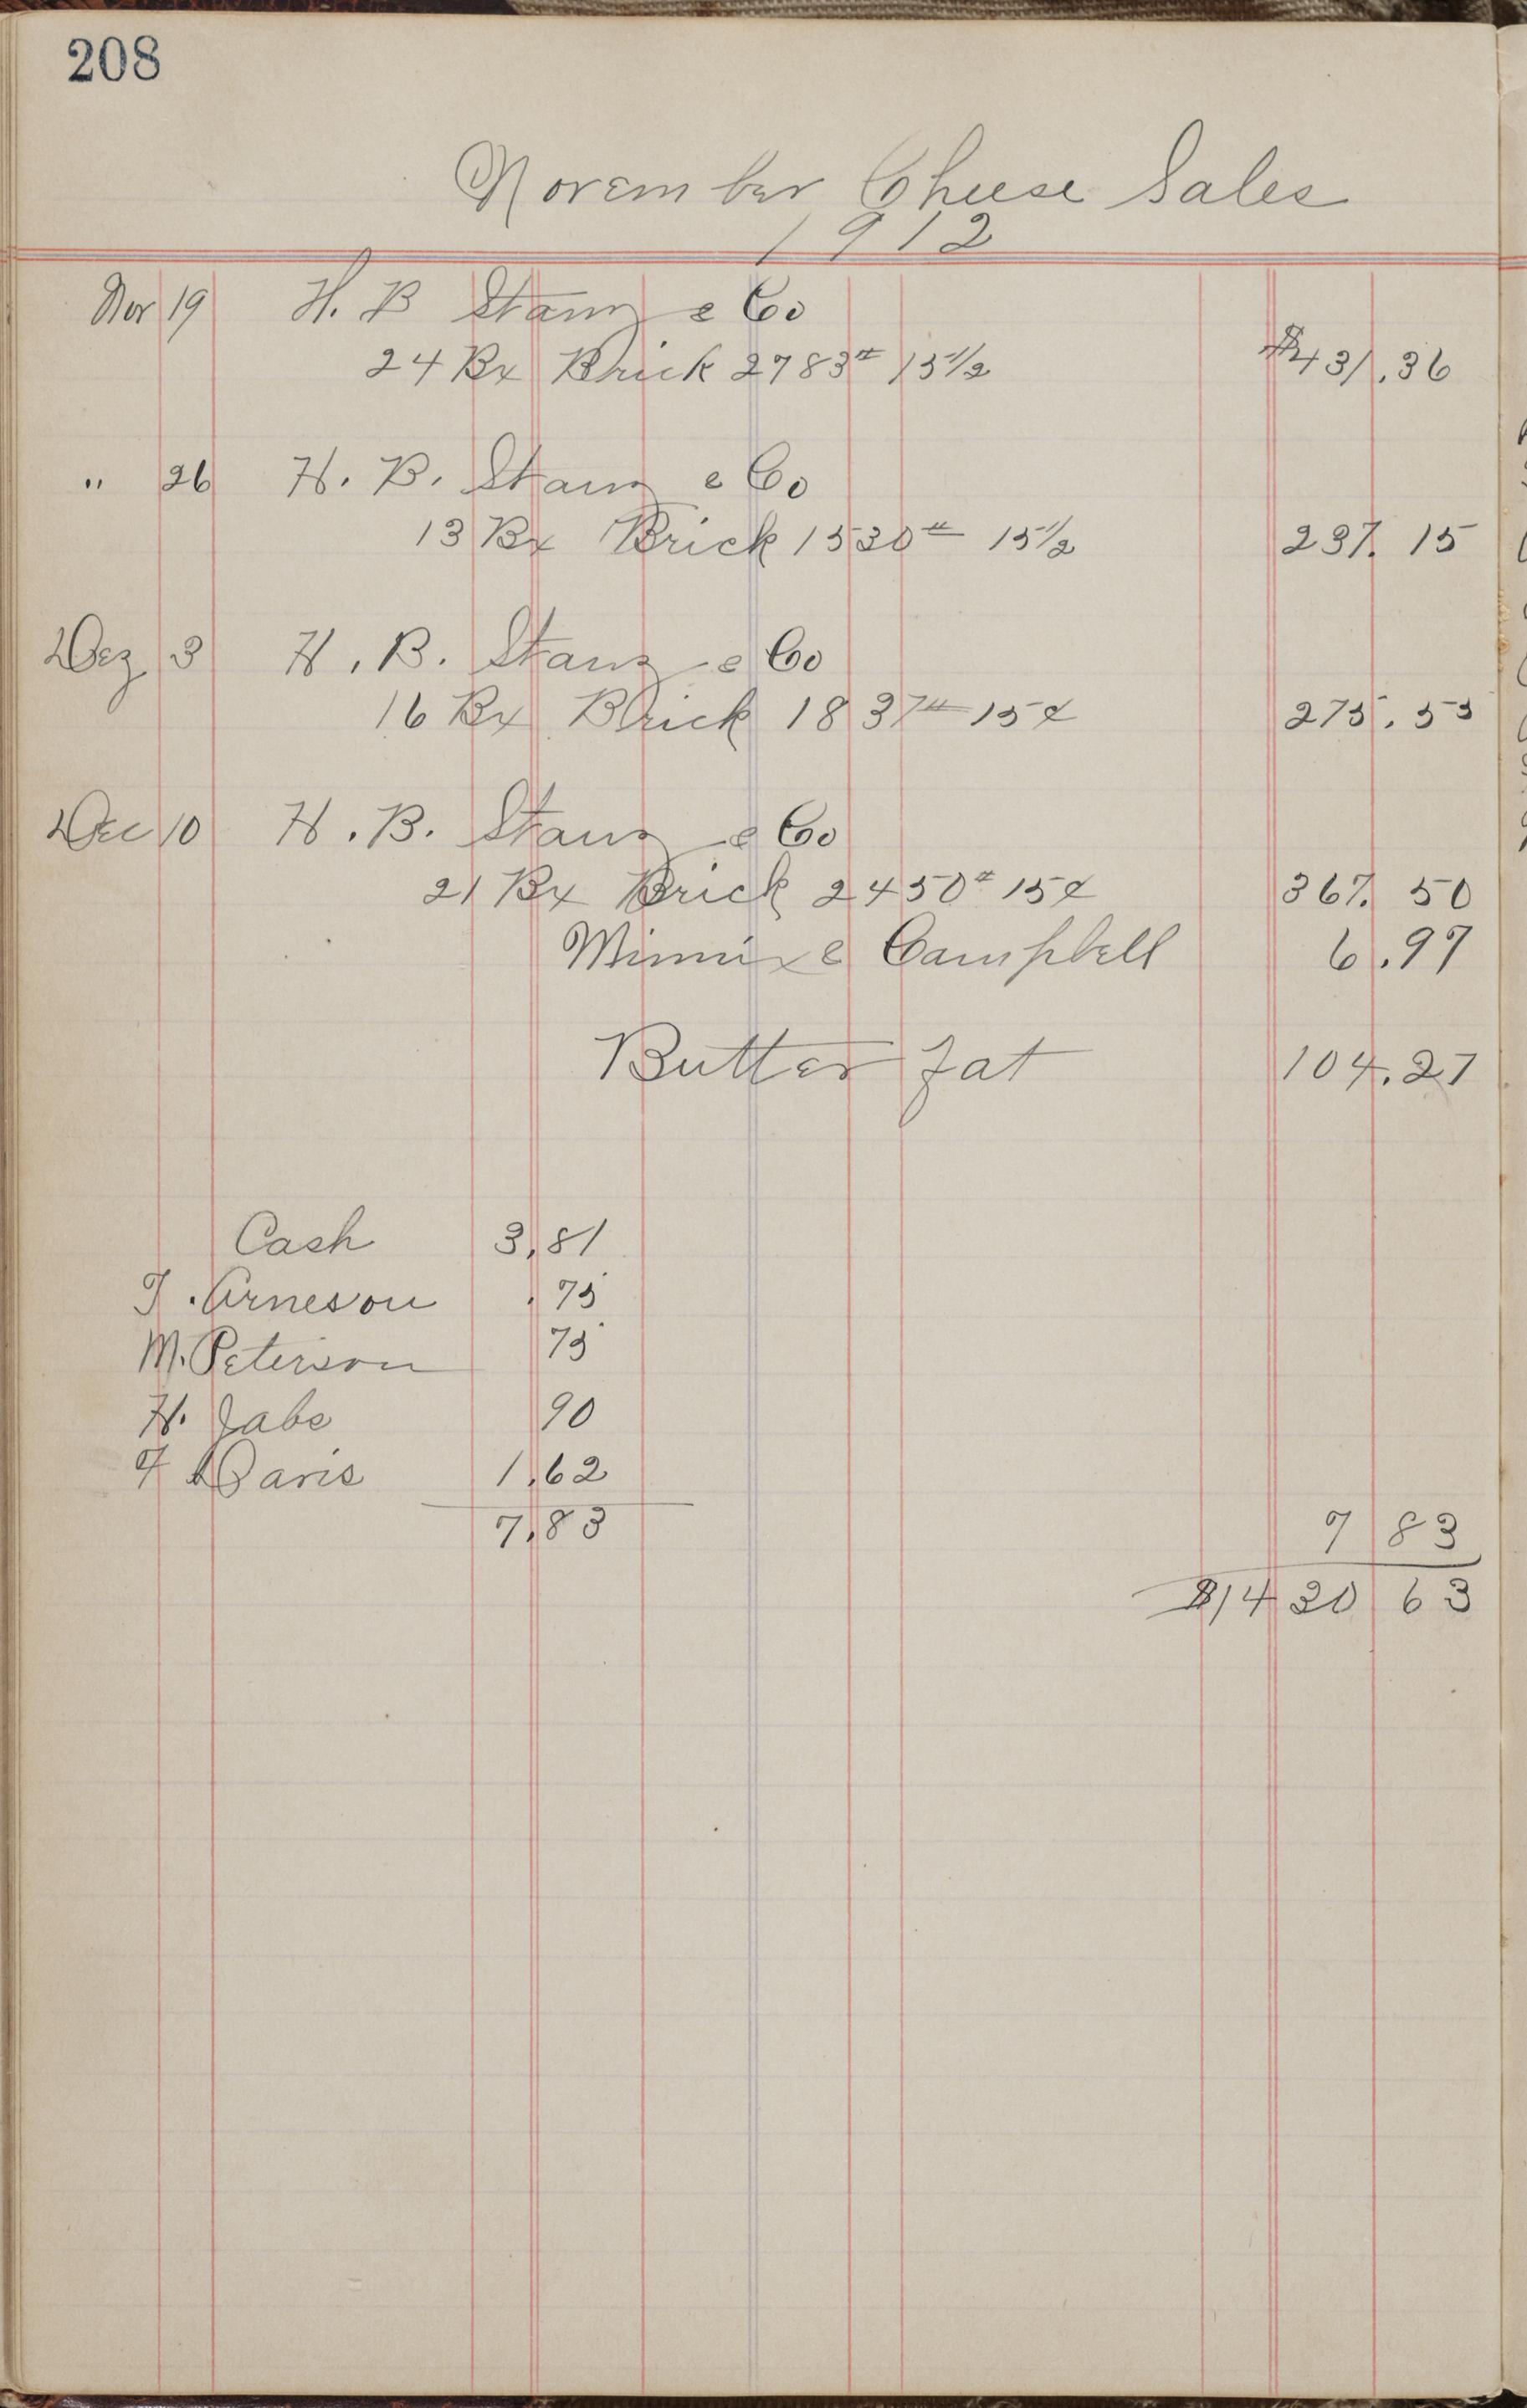 208
November Cheese Sales
1912
Nov 19 H. B Stanz & Co
24 Bx Brick 2783# 15 1/2 $431.36
" 26 H. B. Stanz & Co
13 Bx Brick 1530# 15 1/2 237. 15
Dez 3 H. B. Stanz & Co
16 Bx Brick 1837# 15¢ 275.55
Dec 10 H. B. Stanz & Co
21 Bx Brick 2450# 15¢ 367. 50
Minnix & Campbell 6.97
Butter fat 104.27
Cash 3,81
T. Arneson .75
M. Peterson 75
H. Jabs 90
F Davis 1.62
7.83 7 83
$1430 63